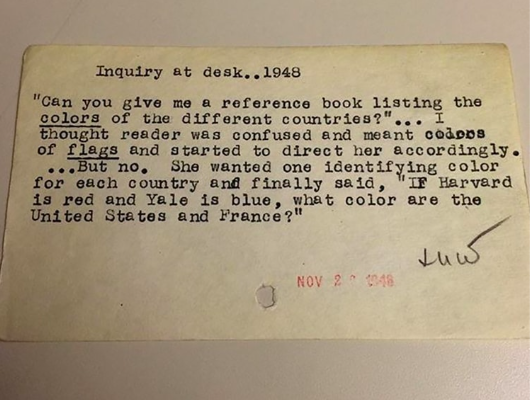 Inquiry at desk..1948
"Can you give me a reference book listing the
colors of the different countries?"... I
thought reader was confused and meant colors
of flags and started to direct her accordingly.
...But no. She wanted one identifying color
for each country and finally said, "IF Harvard
is red and Yale is blue, what color are the
United States and France?"
NOV 2 1948